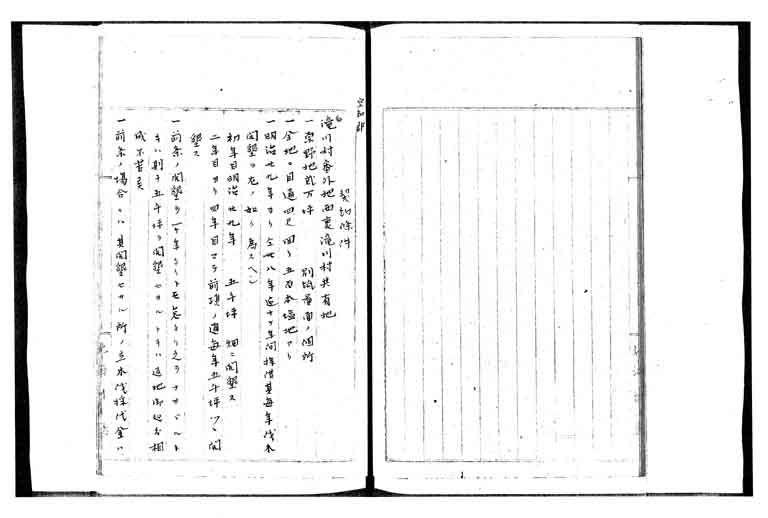 空知郡
契約條件
滝川村番外地西裏滝川村共有地
一原野地弐万坪 別紙畧図ノ個所
一全地ニ目通四尺囲リ五百本塲地アリ
一明治廿九年ヨリ 廿八年迄 年間拝借其毎年伐木
開墾ヲ左ノ如ク為スヘシ
初年目明治廿九年 五千坪 畑ニ開墾ス
二年目ヨリ四年目マテ前項ノ通毎年五千坪ツヽ開
墾ス
一前条ノ開墾ヲ一ヶ年タリトモ怠タリ之ヲナサヾルト
キハ則チ五千坪ヲ開墾セサルトキハ 地御 相
成不苦候
一前条ノ場合ニハ其開墾セサル所ノ立木伐採代金ハ